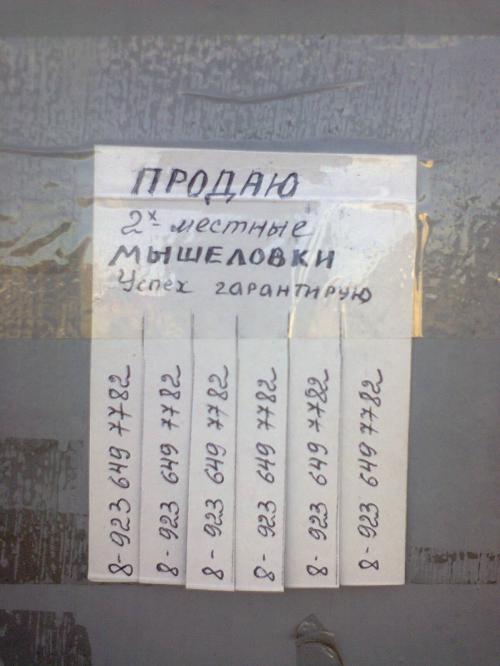 ПРОДАЮ
2х-местные
МЫШЕЛОВКИ
Успех гарантирую
8-923 649 7782
8-923 649 7782
8-923 649 7782
8-923 649 7782
8-923 649 7782
8-923 649 7782